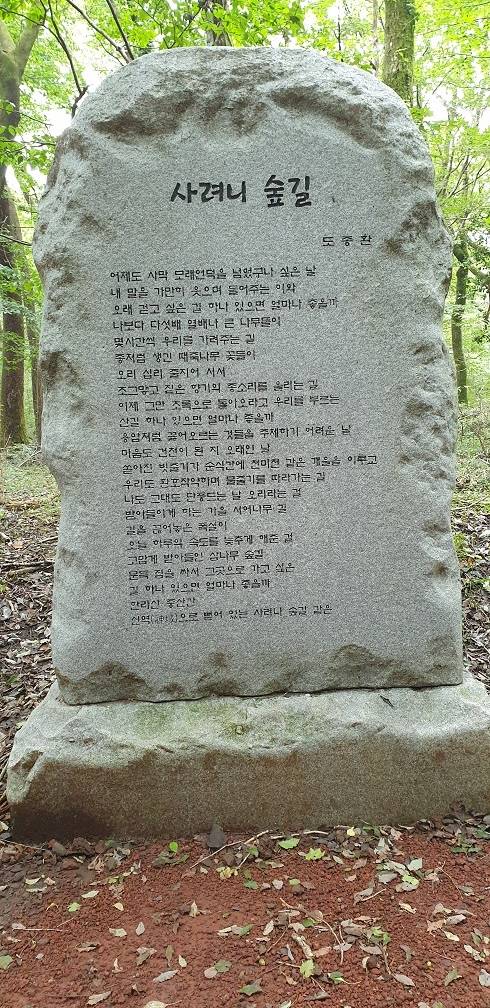 사려니 숲길
도종환
어제도 사막 모래언덕을 넘었구나 싶은 날
내 말을 가만히 웃으며 들어주는 이와
오래 걷고 싶은 길 하나 있으면 얼마나 좋을까
나보다 다섯배 열배나 큰 나무들이
몇시간씩 우리를 가려주는 길
종처럼 생긴 때죽나무 꽃들이
오리 십리 줄지어 서서
조그맣고 짙은 향기의 종소리를 울리는 길
이제 그만 초록으로 돌아오라고 우리를 부르는
산길 하나 있으면 얼마나 좋을까
용암처럼 끓어오르는 것들을 주체하기 어려운 날
마음도 건천이 된 지 오래인 날
쏟아진 빗줄기가 순식간에 천미천 같은 개울을 이루고
우리도 환호작약하며 물줄기를 따라가는 길
나도 그대도 단풍드는 날 오리라는 걸
받아들이게 하는 가을 서어나무 길
길을 끊어놓은 폭설이
오늘 하루의 속도를 늦추게 해준 걸
고맙게 받아들인 삼나무 숲길
문득 짐을 싸서 그곳으로 가고 싶은
길 하나 있으면 얼마나 좋을까
한라산 중산간
신역(神域)으로 뻗어 있는 사려니 숲길 같은